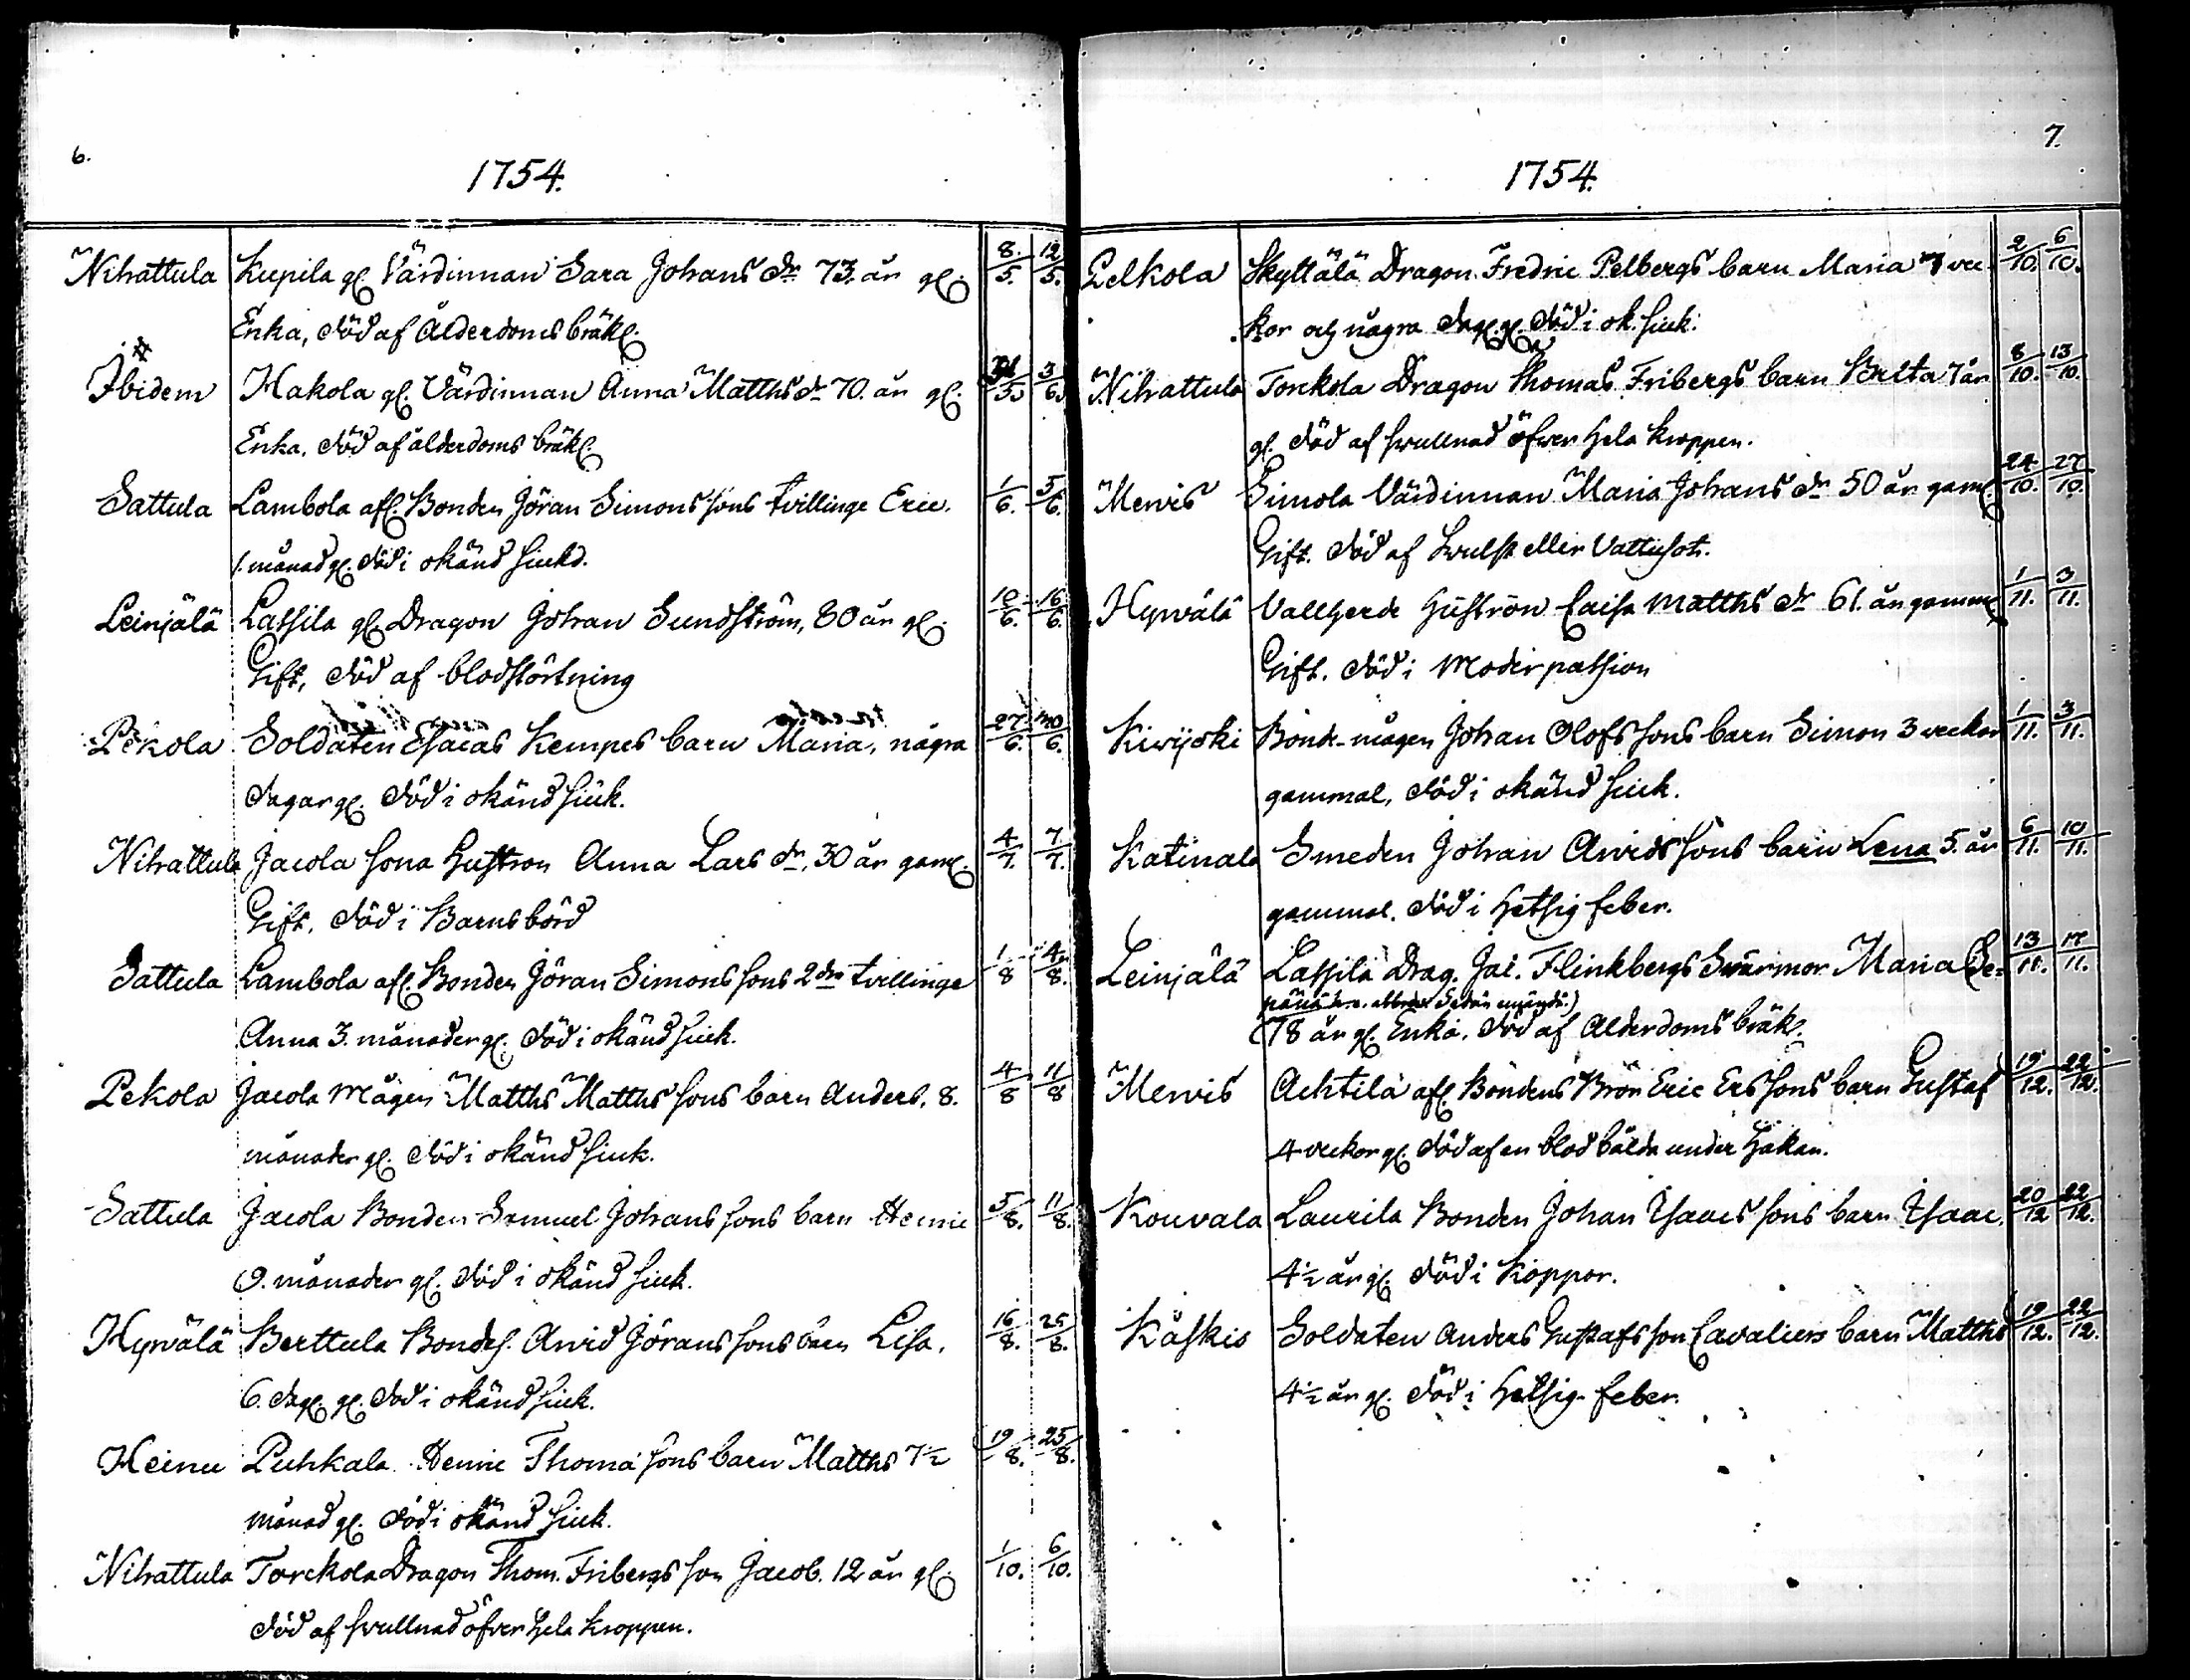 6.
1754.
Nihattula Kupila gl. Värdinnan Sara Johans dr 73. år gl. 8./5. 12/5.
Enka, död af Ålderdoms bräkl.
Ibidem Hakola gl. Värdinnan Anna Matths dr 70. år gl. 31/5 3/6.
Enka. död af ålderdoms bräkl.
Sattula Lambola afl. Bonden Jöran Simons sons tvillinge Eric. 1/6. 5/6.
1. månad gl. död i okänd siukd.
Leinjälä Lassila gl. Dragon Johan Sundström, 80 år gl. 10/6. 16/6.
Gift, död af blodstörtning
Pekola Soldaten Esaias Kempes barn Maria, några 27./6. 30/6.
dagar gl. död i okänd siuk.
Nihattula Jacola sona hustron Anna Lars dr. 30 år gaml. 4/7. 7/7.
Gift. död i Barnsbörd
Sattula Lambola afl. Bonden Jöran Simons sons 2dra tvillinge 1/8 4/8.
Anna 3. månader gl. död i okänd siuk.
Pekola Jacola mågen Matths Matths sons barn Anders. 8. 4/8 11/8
månader gl. död i okänd siuk.
Sattula Jacola Bonden Samuel Johans sons barn Henric 5/8. 11/8.
9. månader gl. död i okänd siuk.
Hyvälä Berttula Bondes. Arvid Jörans sons barn Lisa. 16/8. 25/8.
6. dagl. gl. död i okänd siuk.
Heinu Puhkala Henric Thomæ sons barn Matths 7½ 19/8. 25/8.
månad gl. död i okänd siuk.
Nihattula Torckola Dragon Thom. Fribergs son Jacob. 12 år gl. 1/10. 6/10.
död af svullnad öfver hela kroppen.
7.
1754.
Pelkola Skyttälä Dragon Fredric Pelbergs barn Maria 7 vec- 2/10. 6/10.
kor och några dagl. gl. död i ok. siuk.
Nihattula Torckola Dragon Thomas Fribergs barn Brita 7 år 8/10. 13/10.
gl. död af svullnad öfwer hela kroppen.
Mervis Simola Värdinnan Maria Johans dr 50 år gaml. 24/10. 27/10.
Gift. död af Svulst eller Vattusot.
Hyrvälä Vallherde huströn Caisa Matths dr 61. år gammal 1/11. 3/11.
Gift. död i Moderpassion
Kirvijoki Bond-mågen Johan Olofs sons barn Simon 3 veckor 1/11. 3/11.
gammal, död i okänd siuk.
Katinala Smeden Johan Arvids sons barn Lena 5. år 6/11. 10/11.
gammal. död i hetsig feber.
Leinjälä Lassila Drag. Jac. Flinkbergs Svärmor Maria 13/11. 17/11.
78 år gl. Enka. död af Ålderdoms bräkl.
Mervis Achtila afl. Bondens Bror Eric Ers sons barn Gustaf 19/12. 22/12.
4 veckor gl. död af en blod bålda under hakan.
Kouvala Laurila Bonden Johan Isaacs sons barn Isaac. 20/12 22/12.
4½ år gl. död i Koppor.
Käskis Soldaten Anders Gustafs son Cavaliers barn Matths 19/12. 22/12.
4½ år gl. död i hetsig feber.